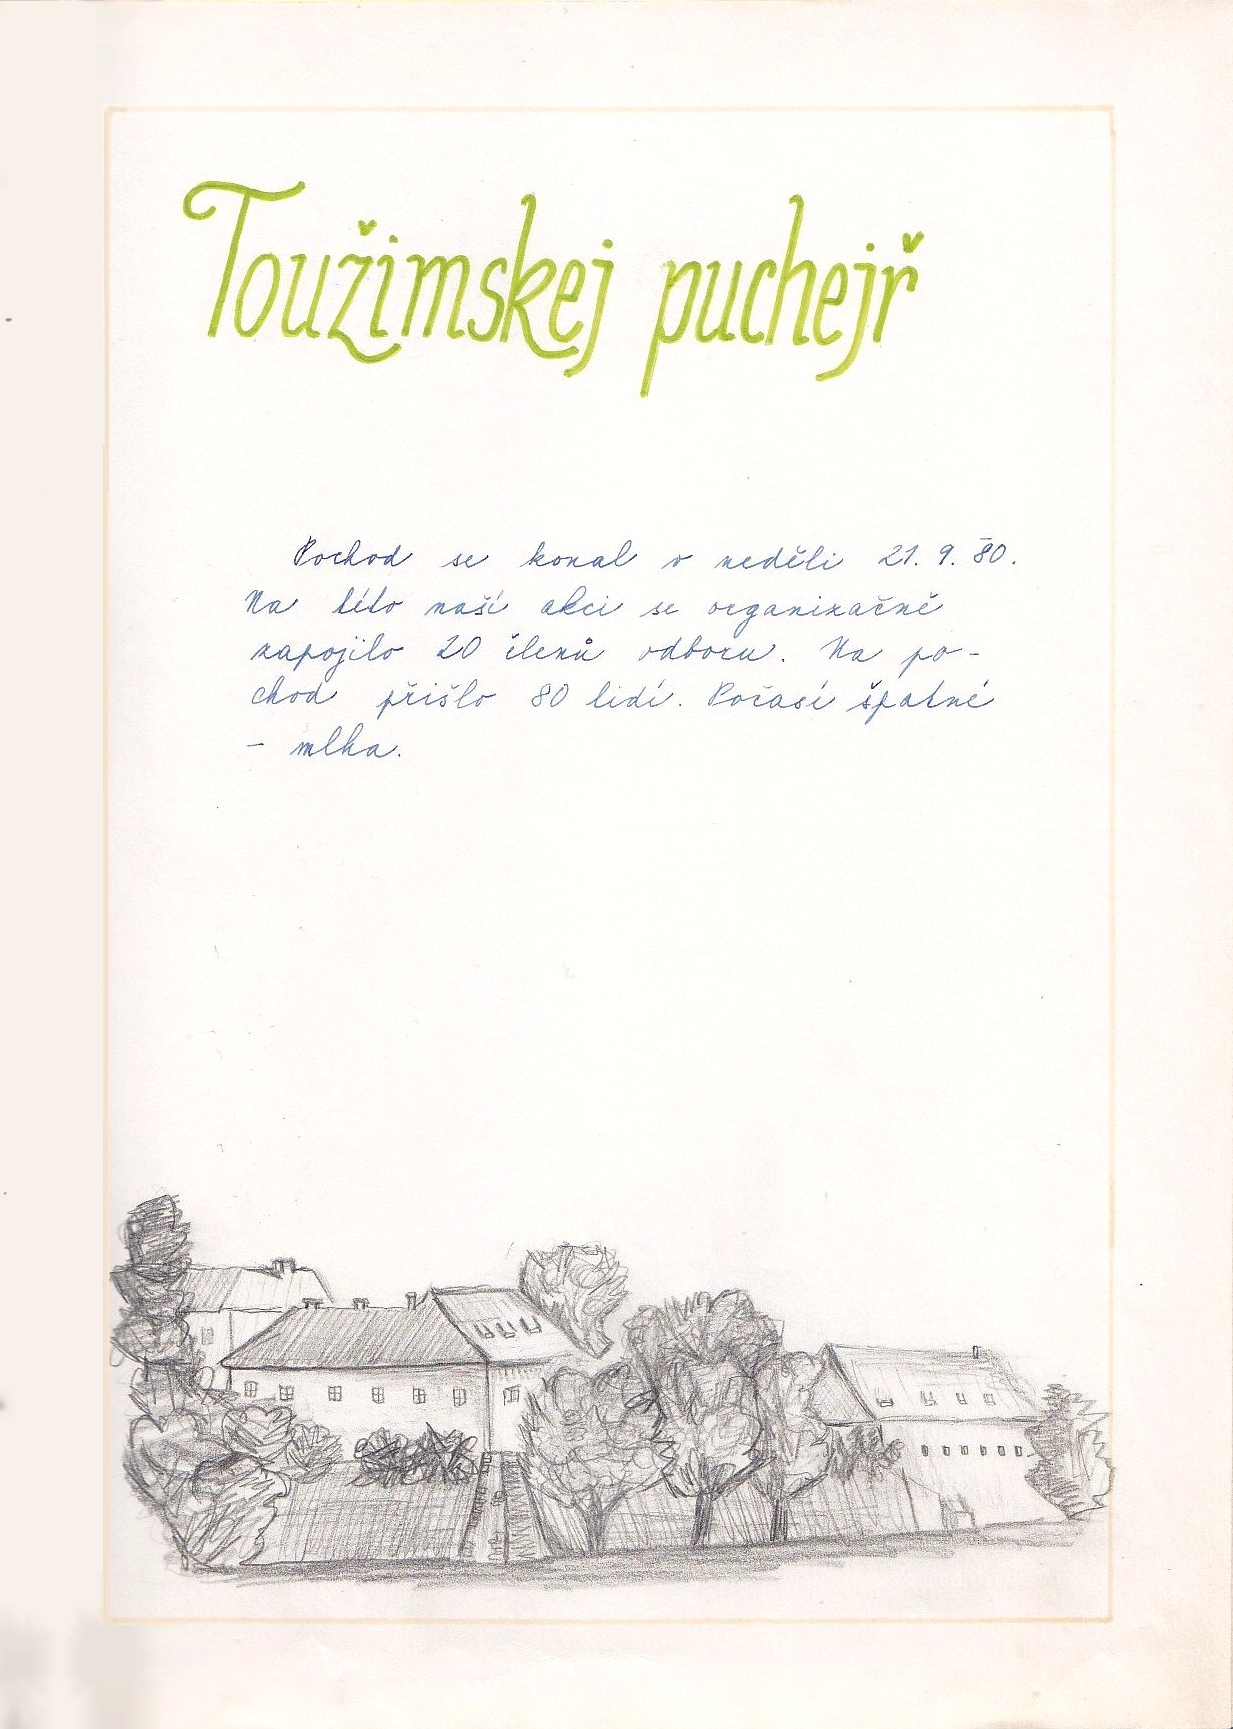 Toužimskej puchejř
Pochod se konal v neděli 21. 9. 80.
Na této naší akci se organizačně
zapojilo 20 členů odboru. Na po-
chod přišlo 80 lidí. Počasí špatné
- mlha.